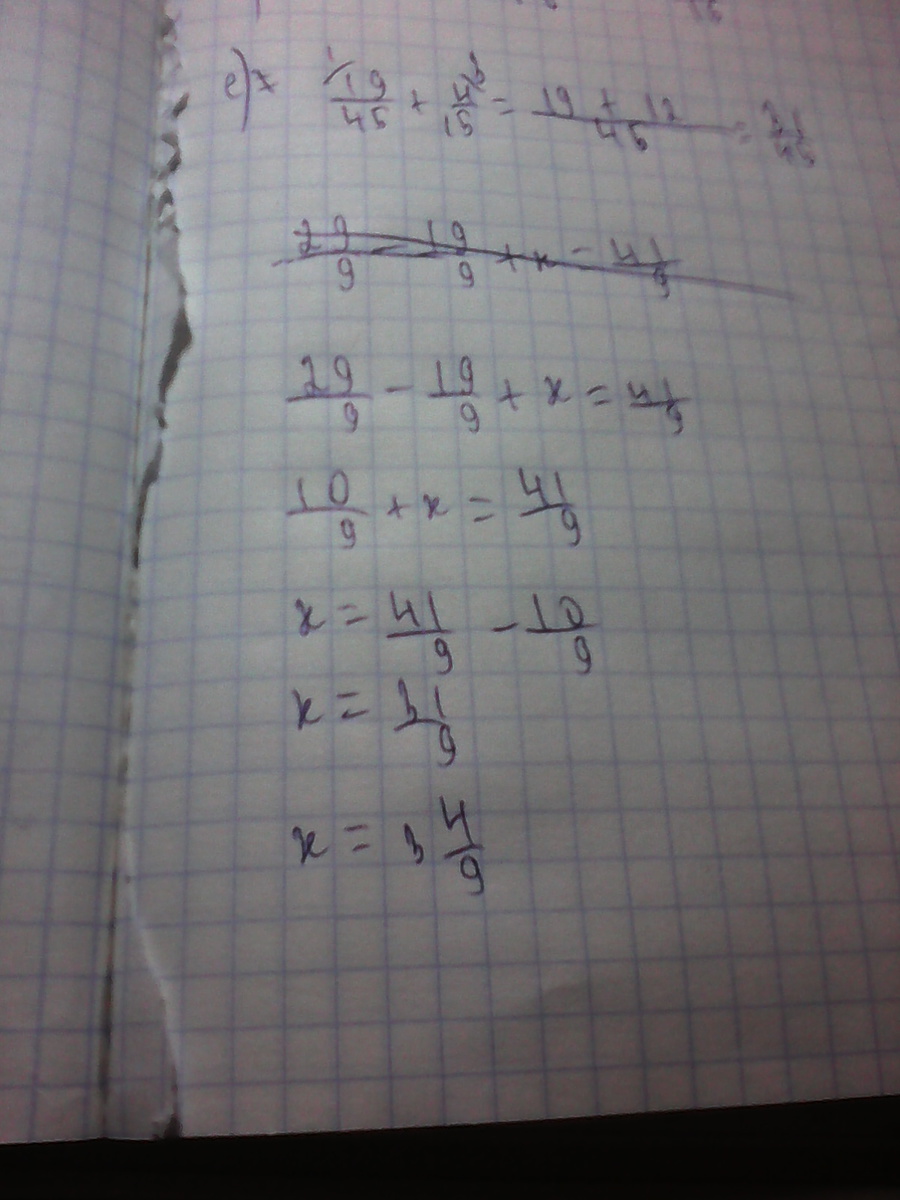 e) x 19/45 + 4/15 = 19 + 12/45 = 31/45
29/9 - 19/9 + x = 41/9
29/9 - 19/9 + x = 41/9
10/9 + x = 41/9
x = 41/9 - 10/9
x = 31/9
x = 3 4/9